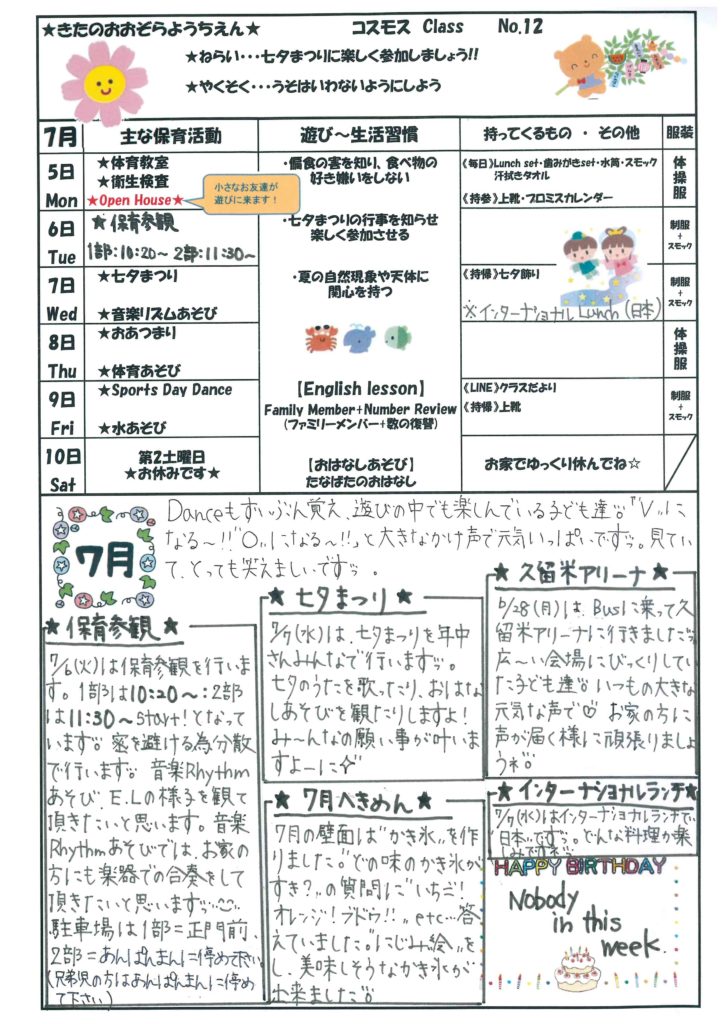 ★きたのおおぞらようちえん★ コスモス Class No.12
★ねらい・・・七夕まつりに楽しく参加しましょう!!
★やくそく・・・うそはいわないようにしよう
7月 主な保育活動 遊び～生活習慣 持ってくるもの ・ その他 服装
5日
Mon
★体育教室
★衛生検査
★Open House★
小さなお友達が
遊びに来ます！
・偏食の害を知り、食べ物の
好き嫌いをしない
《毎日》Lunch set・歯みがきset・水筒・スモック
汗拭きタオル
《持参》上靴・プロミスカレンダー
体操服
6日
Tue
★保育参観
1部:10:20～ 2部:11:30～
・七夕まつりの行事を知らせ
楽しく参加させる
制服
+
スモック
7日
Wed
★七夕まつり
★音楽リズムあそび
・夏の自然現象や天体に
関心を持つ
《持帰》七夕飾り
※インターナショナルLunch（日本）
制服
+
スモック
8日
Thu
★おあつまり
★体育あそび
体操服
9日
Fri
★Sports Day Dance
★水あそび
【English lesson】
Family Member+Number Review
(ファミリーメンバー+数の復讐)
《LINE》クラスだより
《持帰》上靴
制服
+
スモック
10日
Sat
第2土曜日
★お休みです★
【おはなしあそび】
たなばたのおはなし
お家でゆっくり休んでね☆
7月
Danceもずいぶん覚え、遊びの中でも楽しんでいる子ども達。『V〟に
なる～!!〝O〟になる～!!』と大きなかけ声で元気いっぱいです。見てい
て、とっても笑えましいです。
★保育参観★
7/6(火)は保育参観を行いま
す。1部は10:20～:2部
は11:30～start!となって
います。密を避ける為分散
で行います。音楽Rhythm
あそび、E.Lの様子を観て
頂きたいと思います。音楽
Rhythmあそびでは、お家の
方にも楽器での合奏をして
頂きたいと思います。
駐車場は1部=正門前、
2部=あんぱんまんに停めて下さい
(兄弟児の方はあんぱんまんに停め
て下さい)
★七夕まつり★
7/7(水)は、七夕まつりを年中
さんみんなで行います。
七夕のうたを歌ったり、おはな
しあそびを観たりしますよ！
み～んなの願い事が叶いま
すよーに☆
★7月へきめん★
7月の壁面は〝かき氷〟を作
りました。〝どの味のかき氷が
すき？〟の質問に〝いちご！
オレンジ！ブドウ!!〟etc…答
えていました。〝にじみ絵〟を
し、美味しそうなかき氷が
出来ました。
★久留米アリーナ★
6/28(月)は、Busに乗って久
留米アリーナに行きました。
広～い会場にびっくりしてい
た子ども達。いつもの大きな
元気な声で♡お家の方に
声が届く様に頑張りましょ
うね。
★インターナショナルランチ★
7/7(水)はインターナショナルランチで
〝日本〟です。どんな料理か楽
しみですね。
HAPPY BIRTHDAY
Nobody
in this
week.